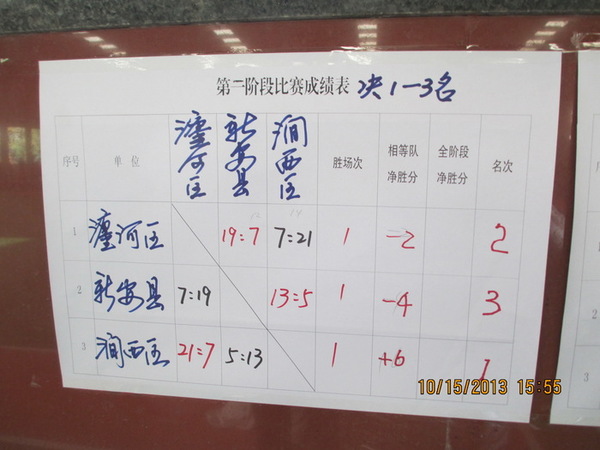 第二阶段比赛成绩表 决1-3名
序号 单位 瀍河区 新安县 涧西区 胜场次 相等队净胜分 全阶段净胜分 名次
1 瀍河区 19:7 7:21 1 -2 2
2 新安县 7:19 13:5 1 -4 3
3 涧西区 21:7 5:13 1 +6 1
10/15/2013 15:55